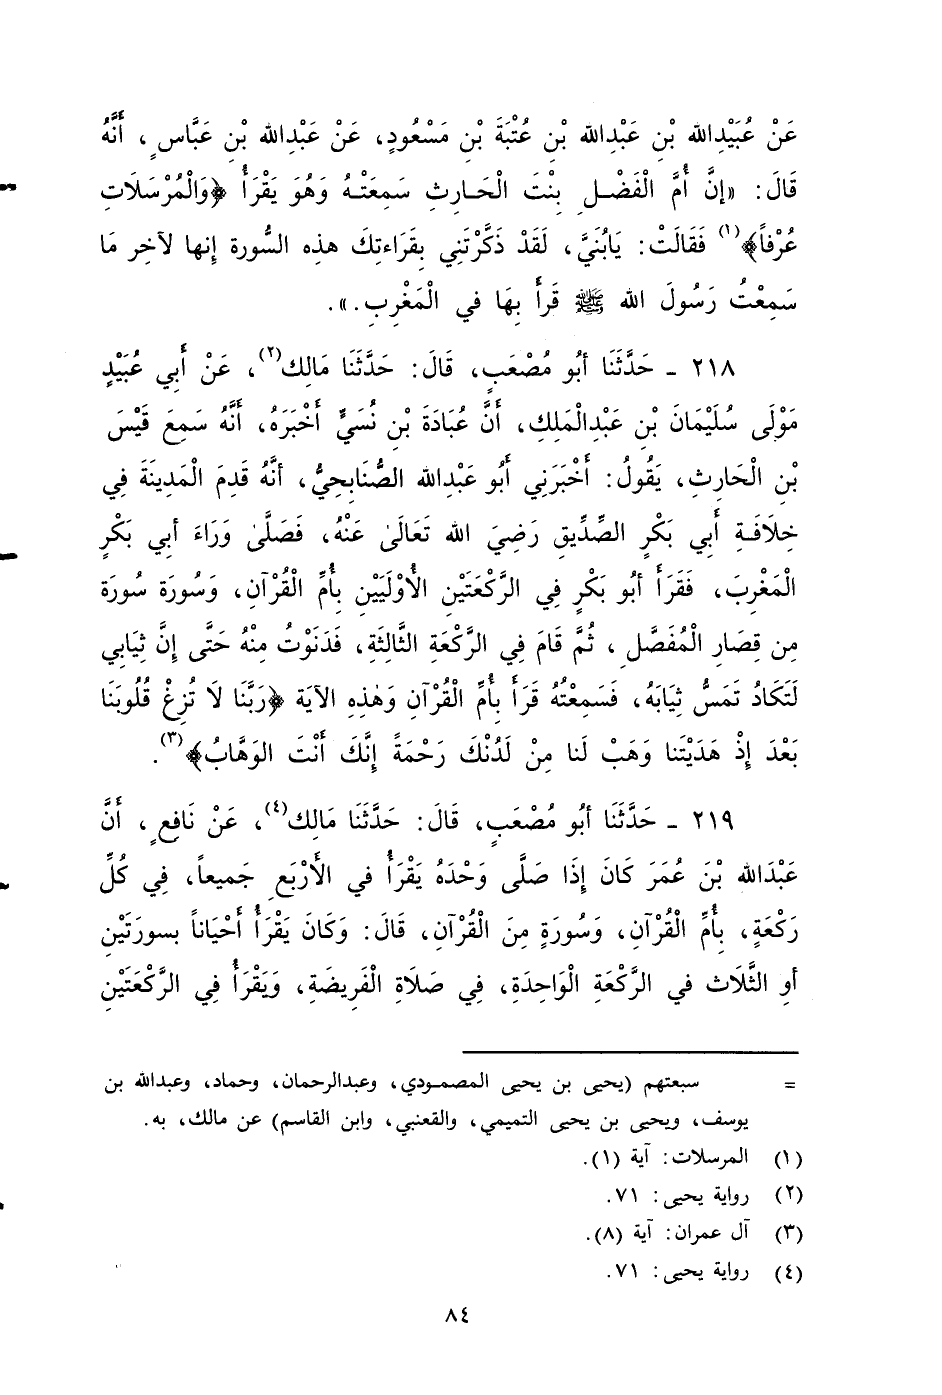 عَنْ عُبَيْدِالله بْنِ عَبْدِالله بْنِ عُتْبَةَ بْنِ مَسْعُودٍ، عَنْ عَبْدِالله بْنِ عَبَّاسٍ، أَنَّهُ
قَالَ: «إنَّ أُمَّ الْفَضْلِ بِنْتَ الْحَارِثِ سَمِعَتْهُ وَهُوَ يَقْرَأُ ﴿وَالْمُرْسَلَاتِ
عُرْفاً﴾(١) فَقَالَتْ: يَابُنَيَّ، لَقَدْ ذَكَّرْتَنِي بِقَرَاءتِكَ هذه السُّورة إنها لآخِر مَا
سَمِعْتُ رَسُولَ الله ﷺ قَرأَ بِهَا في الْمَغْرِبِ.».
٢١٨ ـ حَدَّثَنَا أبُو مُصْعَبٍ، قَالَ: حَدَّثَنَا مَالِك(٢)، عَنْ أَبي عُبَيْدٍ
مَوْلَى سُلَيْمَانَ بْنِ عَبْدِالْمَلِكِ، أَنَّ عُبَادَةَ بْنِ نُسَيٍّ أخْبَرَهُ، أنَّهُ سَمِعَ قَيْسَ
بْنِ الْحَارِثِ، يَقُولُ: أَخْبَرَنِي أَبُو عَبْدِالله الصُّنَابِحِيُّ، أنَّهُ قَدِمَ الْمَدِينَةَ فِي
خِلَافَةِ أَبِي بَكْرٍ الصِّدِّيقِ رَضِيَ الله تَعَالَىٰ عَنْهُ، فَصَلَّىٰ وَرَاءَ أبي بَكْرٍ
الْمَغْرِبَ، فَقَرَأَ أبُو بَكْرٍ فِي الرَّكْعَتَيْنِ الأُوْلَيَيْنِ بِأُمِّ الْقُرْآنِ، وَسُورَة سُورَة
مِن قِصَارِ الْمُفَصَّلِ، ثُمَّ قَامَ فِي الرَّكْعَةِ الثَّالِثَةِ، فَدَنَوْتُ مِنْهُ حَتَّى إنَّ ثِيَابي
لَتَكَادُ تَمَسُّ ثِيَابَهُ، فَسَمِعْتُهُ قَرَأَ بِأُمِّ الْقُرْآنِ وَهٰذِهِ الآيَة ﴿رَبَّنَا لَا تُزِغْ قُلُوبَنَا
بَعْدَ إِذْ هَدَيْتَنا وَهَبْ لَنا مِنْ لَدُنْكَ رَحْمَةً إِنَّكَ أَنْتَ الوَهَّابُ﴾(٣).
٢١٩ ـ حَدَّثَنَا أبُو مُصْعَبٍ، قَالَ: حَدَّثَنَا مَالِك(٤)، عَنْ نَافِعٍ، أَنَّ
عَبْدَالله بْنَ عُمَرَ كَانَ إِذَا صَلَّى وَحْدَهُ يَقْرَأُ في الأَرْبَعِ جَمِيعاً، فِي كُلِّ
رَكْعَةٍ، بِأُمِّ الْقُرْآنِ، وَسُورَةٍ مِنَ الْقُرْآنِ، قَالَ: وَكَانَ يَقْرَأُ أَحْيَاناً بسورَتَيْنِ
أوِ الثَّلَاث في الرَّكْعَةِ الْوَاحِدَةِ، فِي صَلَاةِ الْفَرِيضَةِ، وَيَقْرَأُ فِي الرَّكْعَتَيْنِ
= سبعتهم (يحيى بن يحيى المصمودي، وعبدالرحمان، وحماد، وعبدالله بن
يوسف، ويحيى بن يحيى التميمي، والقعنبي، وابن القاسم) عن مالك، به.
(١) المرسلات: آية (١).
(٢) رواية يحيى: ٧١.
(٣) آل عمران: آية (٨).
(٤) رواية يحيى: ٧١.
٨٤